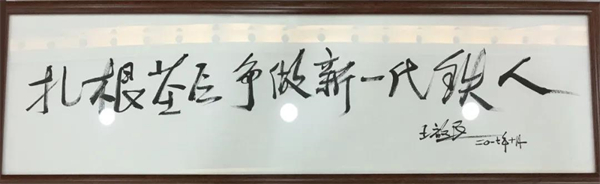 扎根基层争做新一代铁人
王启民
二〇一七年十月